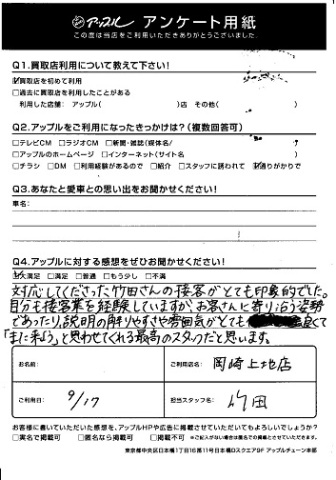 アップル アンケート用紙
この度は当店をご利用いただきありがとうございました。
Q1.買取店利用について教えて下さい!
☑買取店を初めて利用
□過去に買取店を利用したことがある
利用した店舗: アップル( )店 その他( )
Q2.アップルをご利用になったきっかけは?(複数回答可)
□テレビCM □ラジオCM □新聞・雑誌(媒体名/ )
□アップルのホームページ □インターネット(サイト名 )
□チラシ □DM □利用経験があるので □紹介 □スタッフに誘われて ☑通りがかりで
Q3.あなたと愛車との思い出をお聞かせください!
車名:
Q4.アップルに対する感想をぜひお聞かせください!
☑大満足 □満足 □普通 □もう少し □不満
対応してくださった竹田さんの接客がとても印象的でした。
自分も接客業を経験していますが、お客さんに寄り沿う姿勢
であったり、説明の解りやすさや雰囲気がとても良くて
「また来よう」と思わせてくれる最高のスタッフだと思います。
お名前:
ご利用店名: 岡崎上地店
ご利用日: 9/17
担当スタッフ名: 竹田
お客様に書いていただいた感想を、アップルHPや広告に掲載させていただいてもよろしいでしょうか?
□実名で掲載可 □匿名なら掲載可 □掲載不可 ※ご記入がない場合は匿名での掲載とさせていただきます。
東京都中央区日本橋1丁目16番11号日本橋Dスクエア9F アップルチェーン本部